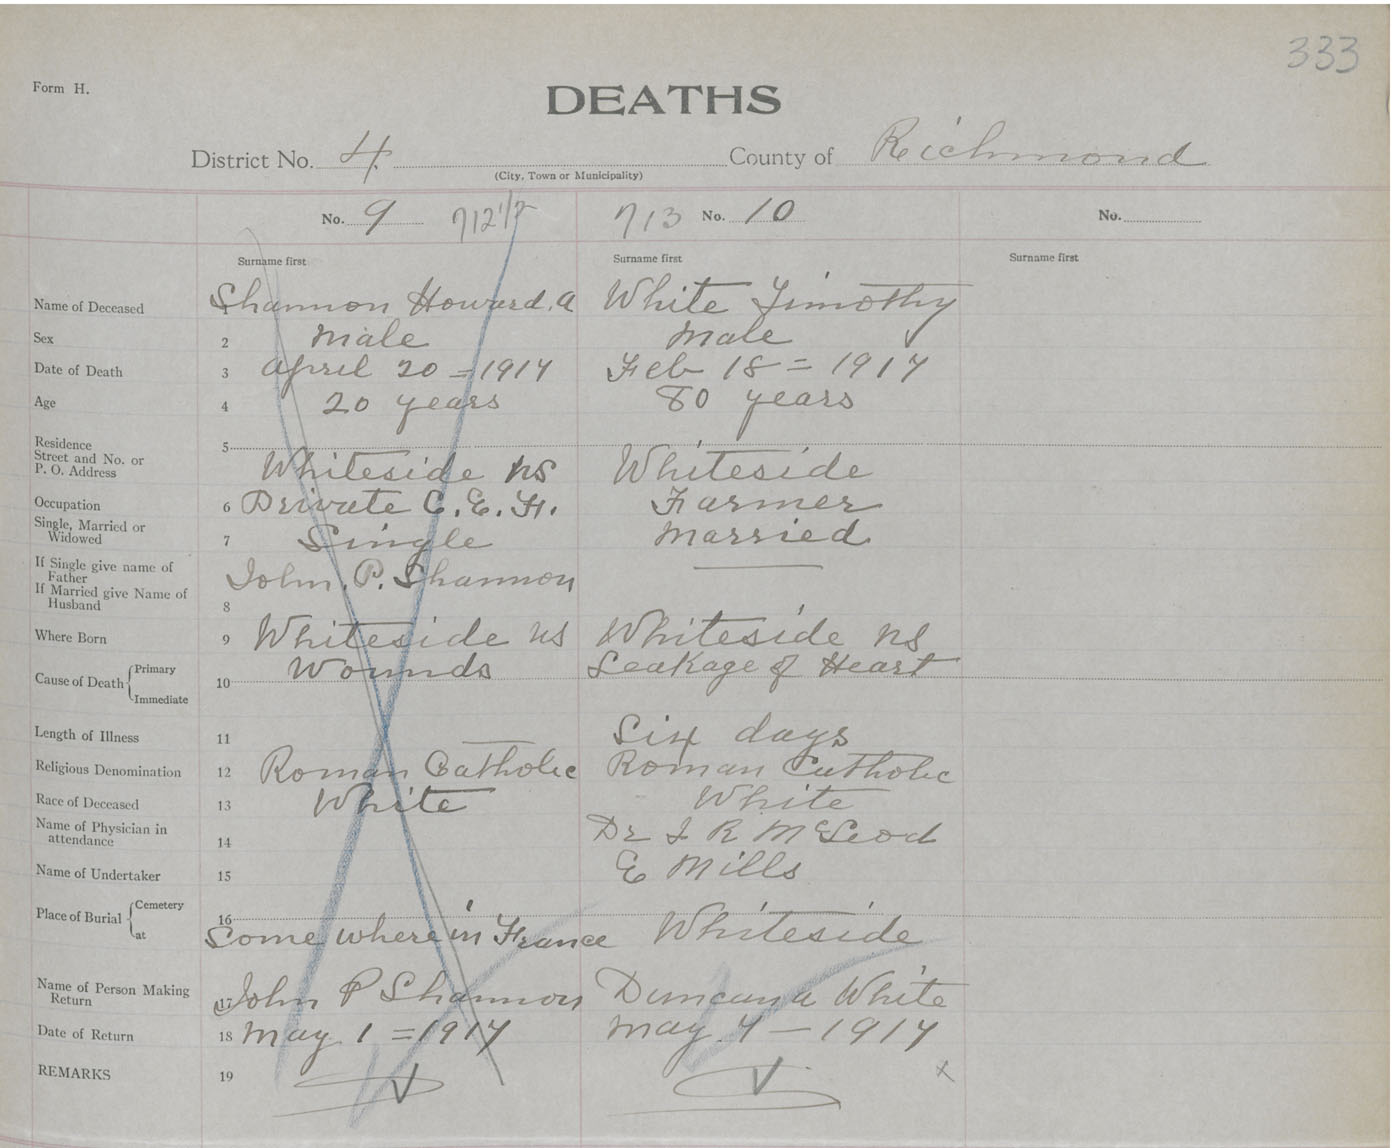 333
Form H.
DEATHS
District No. 4. County of Richmond
(City, Town or Municipality)
No. 9 712 1/2 713 No. 10 No.
Surname first Surname first Surname first
Name of Deceased 1 Shannon Howard. A White Timothy
Sex 2 Male Male
Date of Death 3 April 20 = 1917 Feb 18 = 1917
Age 4 20 years 80 years
Residence 5
Street and No. or
P. O. Address Whiteside NS Whiteside
Occupation 6 Private C. E. F. Farmer
Single, Married or
Widowed 7 Single Married
If Single give name of
Father John. P. Shannon
If Married give Name of
Husband 8
Where Born 9 Whiteside NS Whiteside NS
Cause of Death Primary 10 Wounds Leakage of Heart
Immediate
Length of Illness 11 Six days
Religious Denomination 12 Roman Catholic Roman Catholic
Race of Deceased 13 White White
Name of Physician in
attendance 14 Dr J R McLeod
Name of Undertaker 15 E Mills
Place of Burial Cemetery 16
at Some where in France Whiteside
Name of Person Making
Return 17 John P Shannon Duncan A White
Date of Return 18 May 1 = 1917 May 7 — 1917
REMARKS 19 x